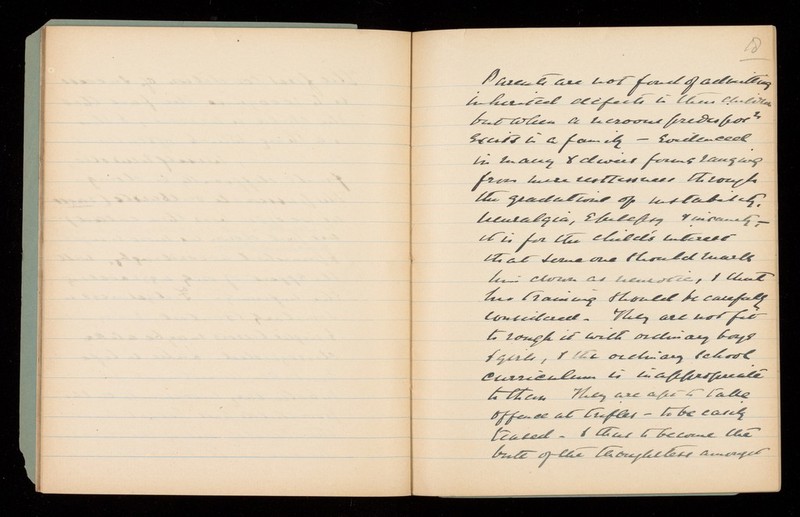 18
Parents are not fond of admitting
inherited defects in their children
but when a nervous predispos^n
exists in a family — Evidenced
in many & divers forms ranging
from mere restlessness through
the gradations of instability,
neuralgia, Epilepsy & insanity, —
it is for the child's interest
that some one should mark
him down as neurotic, & that
his training should be carefully
considered. They are not fit
to rough it with ordinary boys
& girls, & the ordinary school
curriculum is inappropriate
to them They are apt to take
offence at trifles — to be easily
teased — & thus to become the
butt of the thoughtless amongst